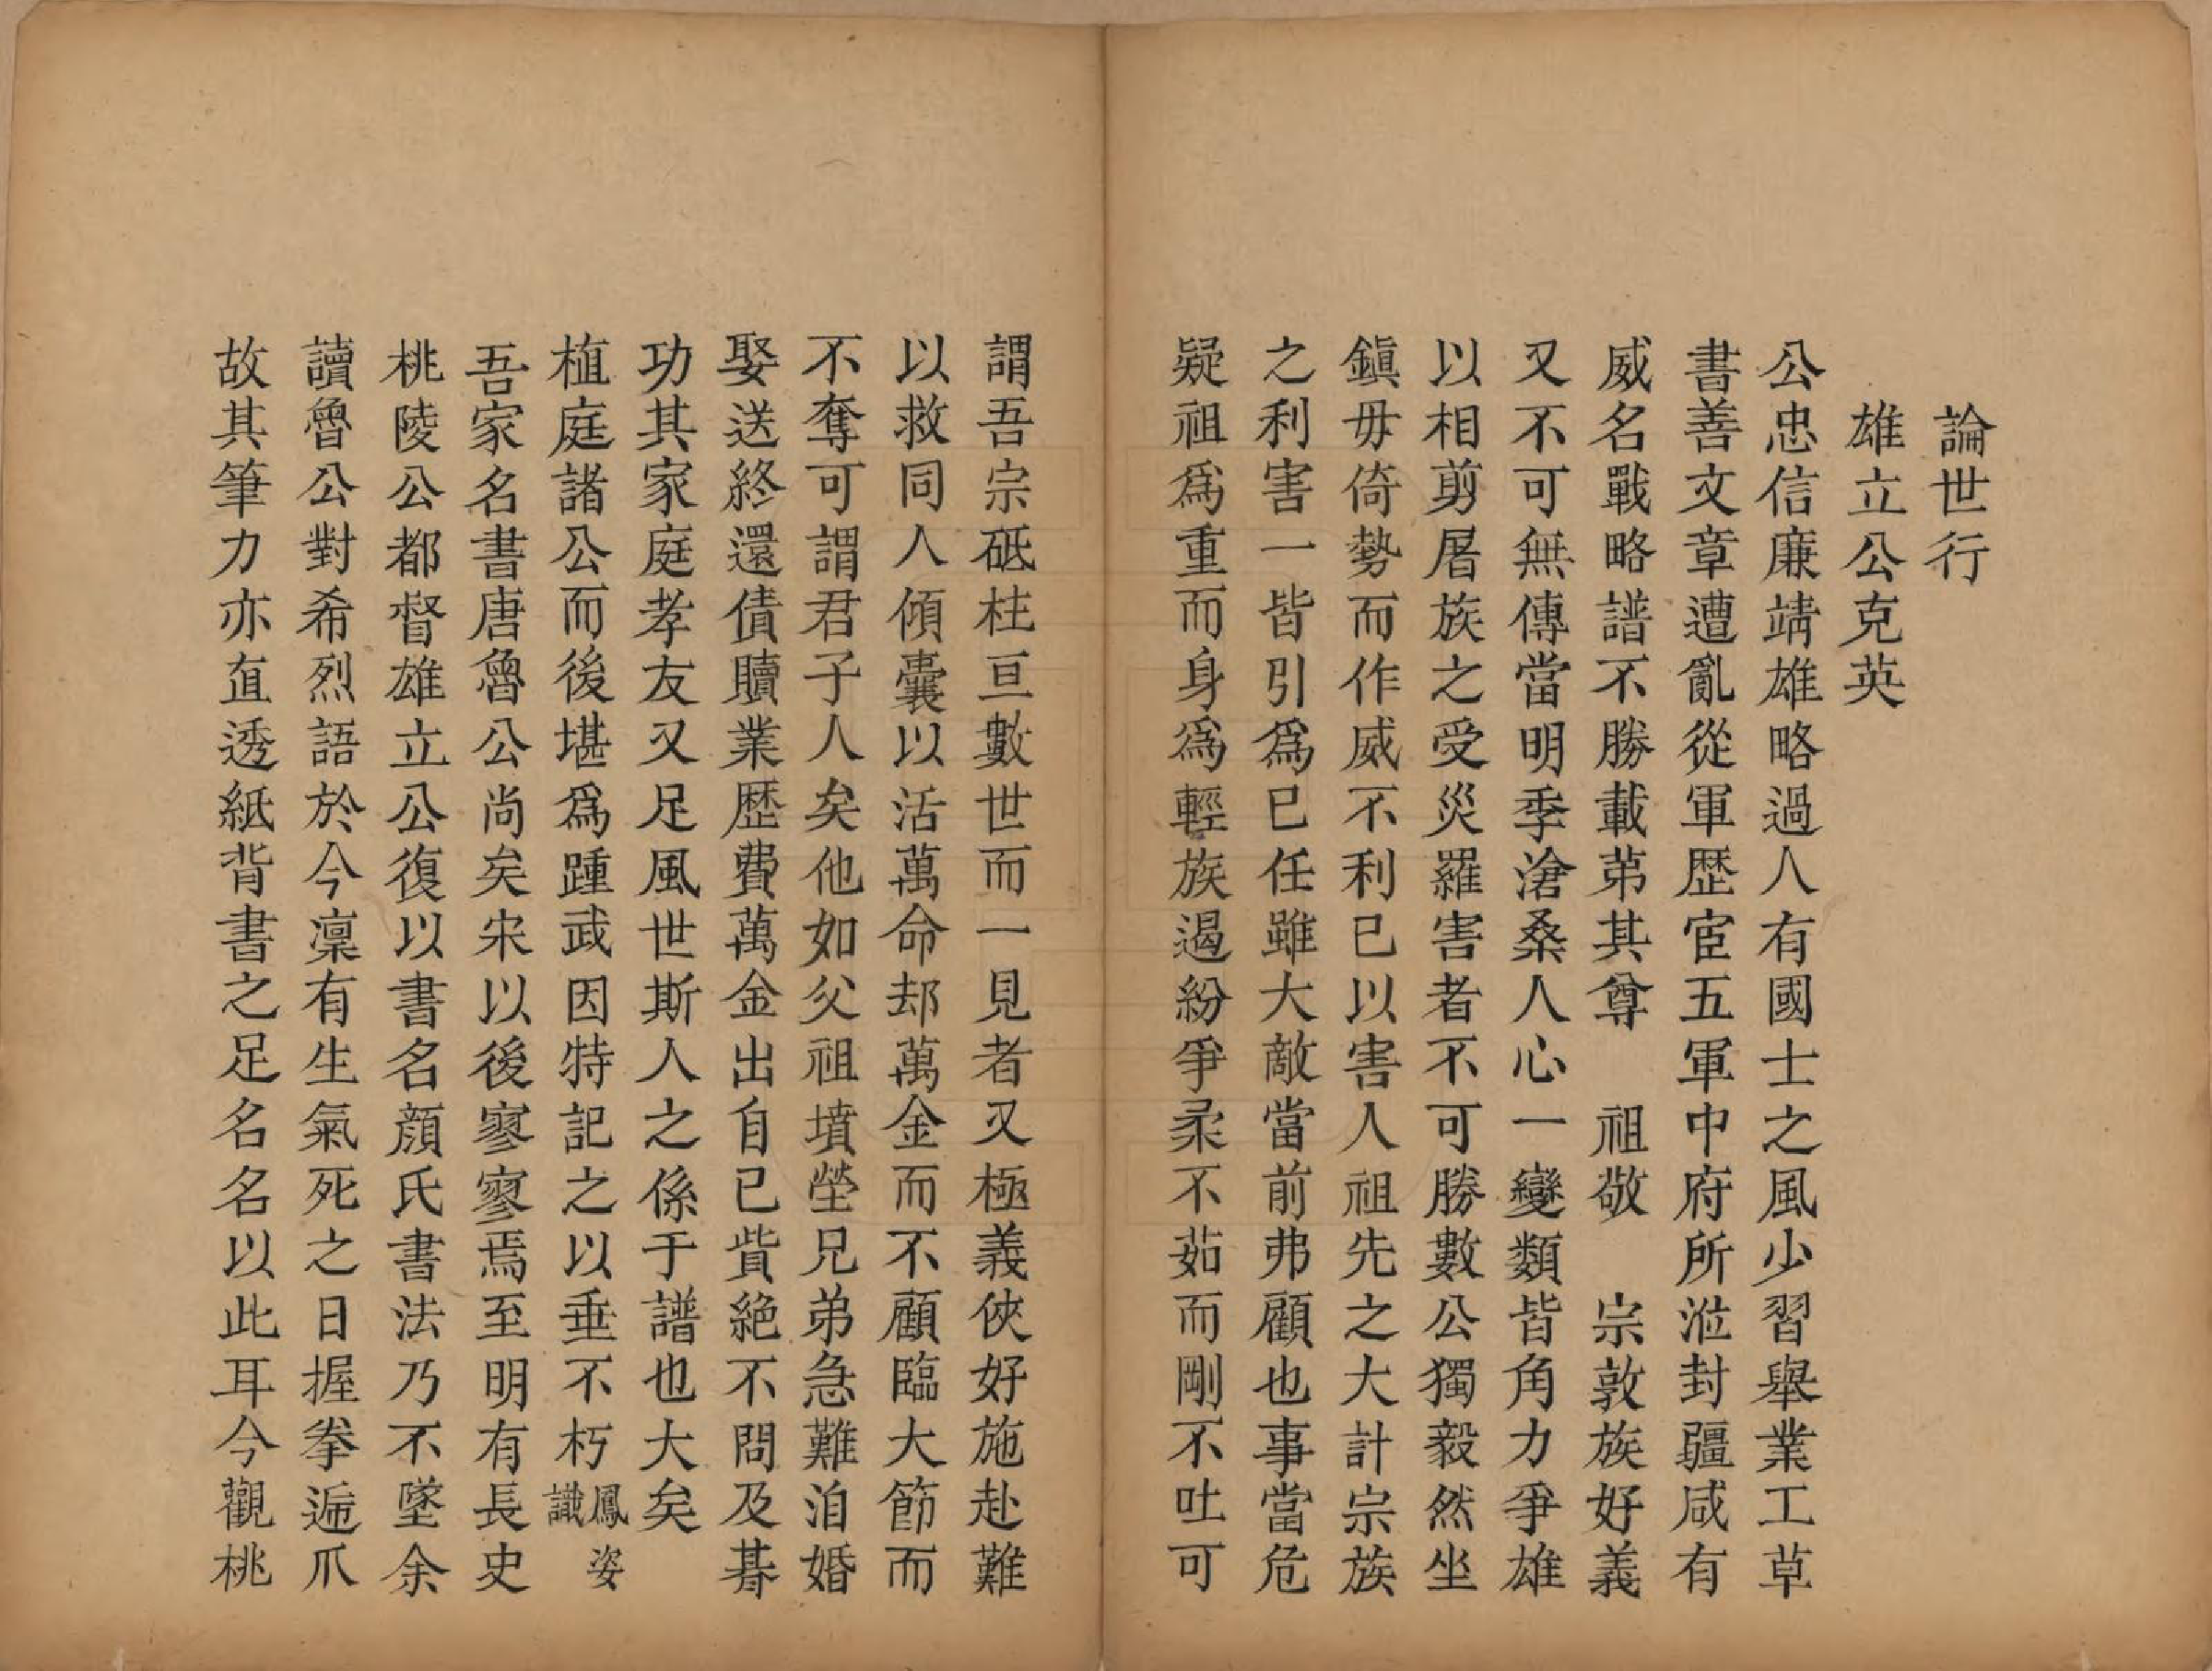 論世行
雄立公克英
公忠信廉靖雄略過人有國士之風少習舉業工草
書善文章遭亂從軍歴宦五軍中府所涖封疆咸有
威名戰略譜不勝載苐其尊　祖敬　宗敦族好義
又不可無傳當明季滄桑人心一變類皆角力爭雄
以相剪屠族之受災羅害者不可勝數公獨毅然坐
鎮毋倚勢而作威不利已以害人祖先之大計宗族
之利害一皆引爲已任雖大敵當前弗顧也事當危
疑祖爲重而身爲輕族遏紛爭柔不茹而剛不吐可
謂吾宗砥柱亘數世而一見者又極義俠好施赴難
以救同人傾囊以活萬命却萬金而不顧臨大節而
不奪可謂君子人矣他如父祖墳塋兄弟急難洎婚
娶送終還債贖業歴費萬金出自已貲絕不問及朞
功其家庭孝友又足風世斯人之係于譜也大矣
植庭諸公而後堪爲踵武因特記之以垂不朽鳳姿識
吾家名書唐魯公尚矣宋以後寥寥焉至明有長史
桃陵公都督雄立公復以書名顏氏書法乃不墜余
讀魯公對希烈語於今凜有生氣死之日握拳遍爪
故其筆力亦直透紙背書之足名名以此耳今觀桃